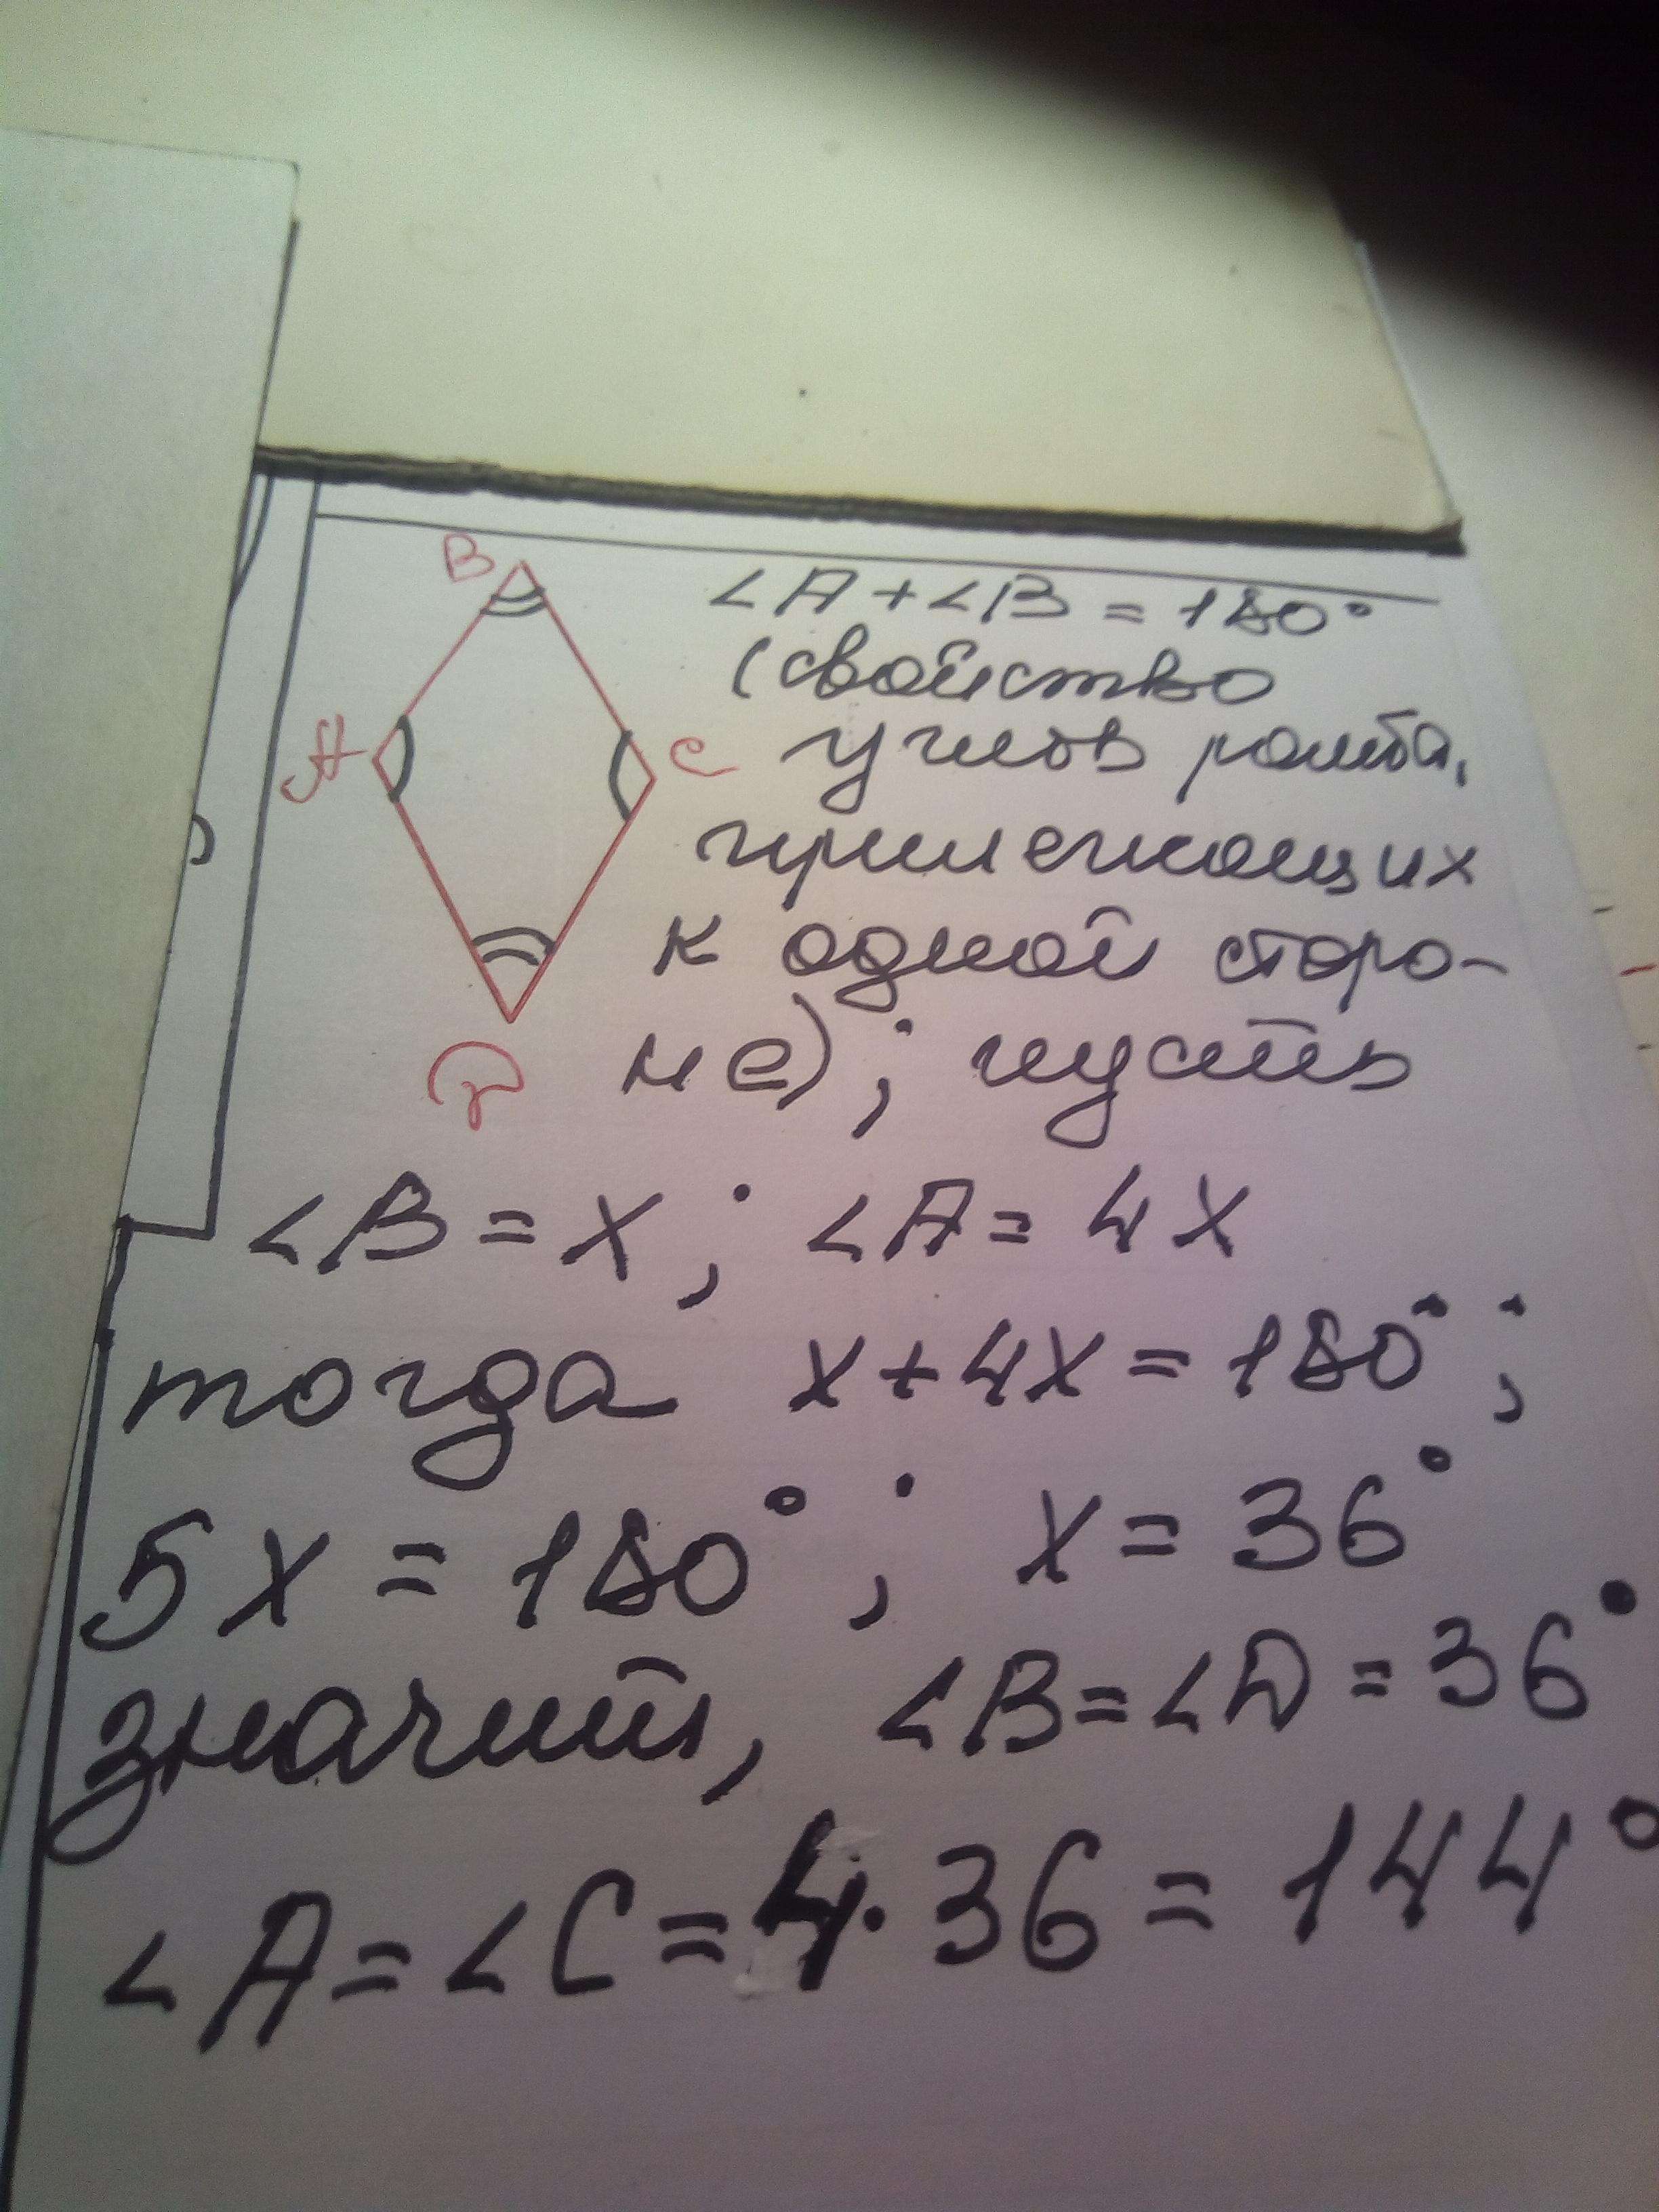 B
∠A+∠B=180°
(свойство
A
C
углов ромба,
прилежащих
к одной сторо-
не); пусть
D
∠B=x; ∠A=4x
тогда x+4x=180°;
5x=180°; x=36°
значит, ∠B=∠D=36°
∠A=∠C=4·36=144°